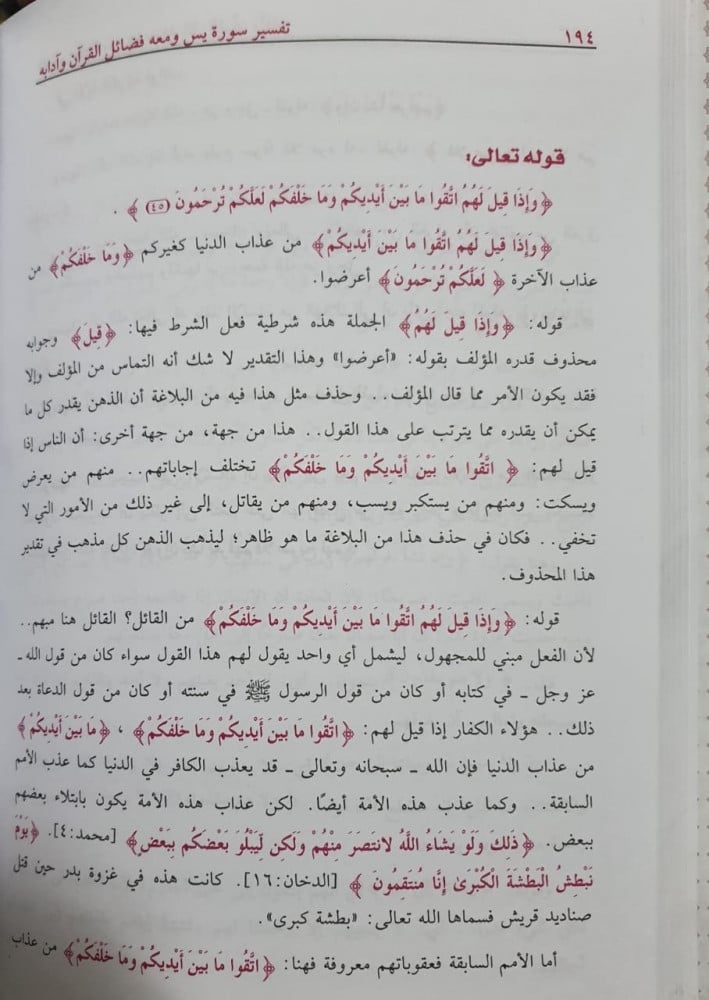 ١٩٤
تفسير سورة يس ومعه فضائل القرآن وآدابه
قوله تعالى:
﴿وَإِذَا قِيلَ لَهُمُ اتَّقُوا مَا بَيْنَ أَيْدِيكُمْ وَمَا خَلْفَكُمْ لَعَلَّكُمْ تُرْحَمُونَ (٤٥) ﴾ .
﴿وَإِذَا قِيلَ لَهُمُ اتَّقُوا مَا بَيْنَ أَيْدِيكُمْ﴾ من عذاب الدنيا كغيركم ﴿وَمَا خَلْفَكُمْ﴾ من
عذاب الآخرة ﴿ لَعَلَّكُمْ تُرْحَمُونَ﴾ أعرضوا.
قوله: ﴿وَإِذَا قِيلَ لَهُمُ﴾ الجملة هذه شرطية فعل الشرط فيها: ﴿قِيلَ﴾ وجوابه
محذوف قدره المؤلف بقوله: «أعرضوا» وهذا التقدير لا شك أنه التماس من المؤلف وإلا
فقد يكون الأمر مما قال المؤلف.. وحذف مثل هذا فيه من البلاغة أن الذهن يقدر كل ما
يمكن أن يقدره مما يترتب على هذا القول.. هذا من جهة، من جهة أخرى: أن الناس إذا
قيل لهم: ﴿ اتَّقُوا مَا بَيْنَ أَيْدِيكُمْ وَمَا خَلْفَكُمْ﴾ تختلف إجاباتهم.. منهم من يعرض
ويسكت: ومنهم من يستكبر ويسب، ومنهم من يقاتل، إلى غير ذلك من الأمور التي لا
تخفي.. فكان في حذف هذا من البلاغة ما هو ظاهر؛ ليذهب الذهن كل مذهب في تقدير
هذا المحذوف.
قوله: ﴿وَإِذَا قِيلَ لَهُمُ اتَّقُوا مَا بَيْنَ أَيْدِيكُمْ وَمَا خَلْفَكُمْ﴾ من القائل؟ القائل هنا مبهم..
لأن الفعل مبني للمجهول، ليشمل أي واحد يقول لهم هذا القول سواء كان من قول الله ـ
عز وجل ـ في كتابه أو كان من قول الرسول ﷺ في سنته أو كان من قول الدعاة بعد
ذلك.. هؤلاء الكفار إذا قيل لهم: ﴿اتَّقُوا مَا بَيْنَ أَيْدِيكُمْ وَمَا خَلْفَكُمْ﴾ ، ﴿مَا بَيْنَ أَيْدِيكُمْ﴾
من عذاب الدنيا فإن الله ـ سبحانه وتعالى ـ قد يعذب الكافر في الدنيا كما عذب الأمم
السابقة.. وكما عذب هذه الأمة أيضًا. لكن عذاب هذه الأمة يكون بابتلاء بعضهم
ببعض. ﴿ذَلِكَ وَلَوْ يَشَاءُ اللَّهُ لانتَصَرَ مِنْهُمْ وَلَكِن لِّيَبْلُوَ بَعْضَكُم بِبَعْضٍ﴾ [محمد:٤]. ﴿يَوْمَ
نَبْطِشُ الْبَطْشَةَ الْكُبْرَىٰ إِنَّا مُنتَقِمُونَ ﴾ [الدخان:١٦]. كانت هذه في غزوة بدر حين قتل
صناديد قريش فسماها الله تعالى: «بطشة كبرى».
أما الأمم السابقة فعقوباتهم معروفة فهنا: ﴿اتَّقُوا مَا بَيْنَ أَيْدِيكُمْ وَمَا خَلْفَكُمْ﴾ من عذاب